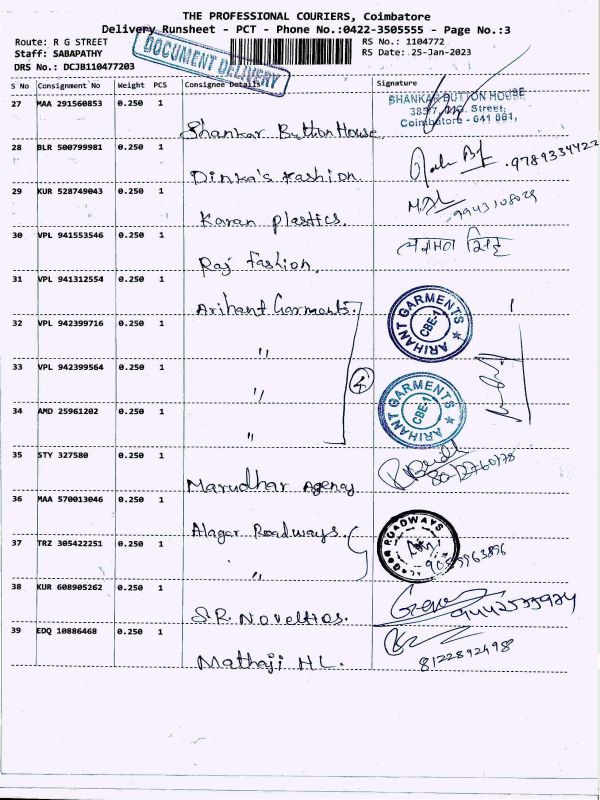 THE PROFESSIONAL COURIERS, Coimbatore
Delivery Runsheet - PCT - Phone No.:0422-3505555 - Page No.:3
Route: R G STREET
RS No.: 1104772
Staff: SABAPATHY
RS Date: 25-Jan-2023
DRS No.: DCJB110477203
DOCUMENT DELIVERY
S No Consignment No Weight PCS Consignee Details Signature
27 MAA 291560853 0.250 1
Shankar Button House
SHANKAR BUTTON HOUSE
Street,
Coimbatore - 641 001,
28 BLR 500799981 0.250 1
Dinka's Fashion
9789334422
29 KUR 528749043 0.250 1
Karan plastics.
30 VPL 941553546 0.250 1
Raj fashion.
31 VPL 941312554 0.250 1
Arihant Garments.
ARIHANT GARMENTS
CBE-1
32 VPL 942399716 0.250 1
"
33 VPL 942399564 0.250 1
"
4
ARIHANT GARMENTS
CBE-1
34 AMD 25961202 0.250 1
"
35 STY 327580 0.250 1
Marudhar Agency
36 MAA 570013046 0.250 1
Alagar Roadways.
ROADWAYS
37 TRZ 305422251 0.250 1
"
38 KUR 608905262 0.250 1
S.R. Novelties.
39 EDQ 10886468 0.250 1
Mathaji HL.
8122892498